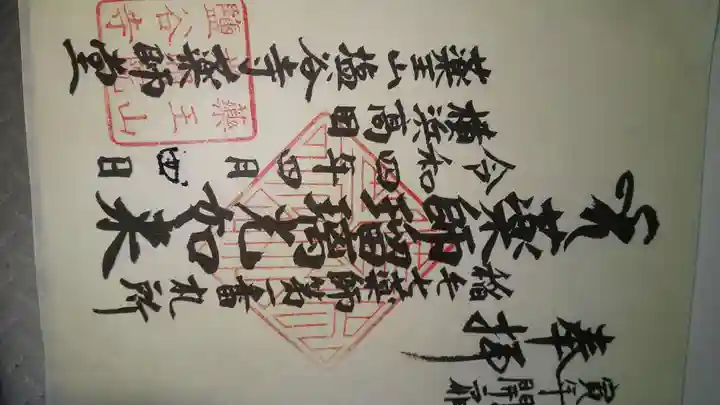 寅年開
奉拝
稲毛七薬師第一番札所
薬師瑠璃光如来
令和四年四月四日
横浜高田
薬王山塩谷寺薬師堂
薬王山
鹽谷寺